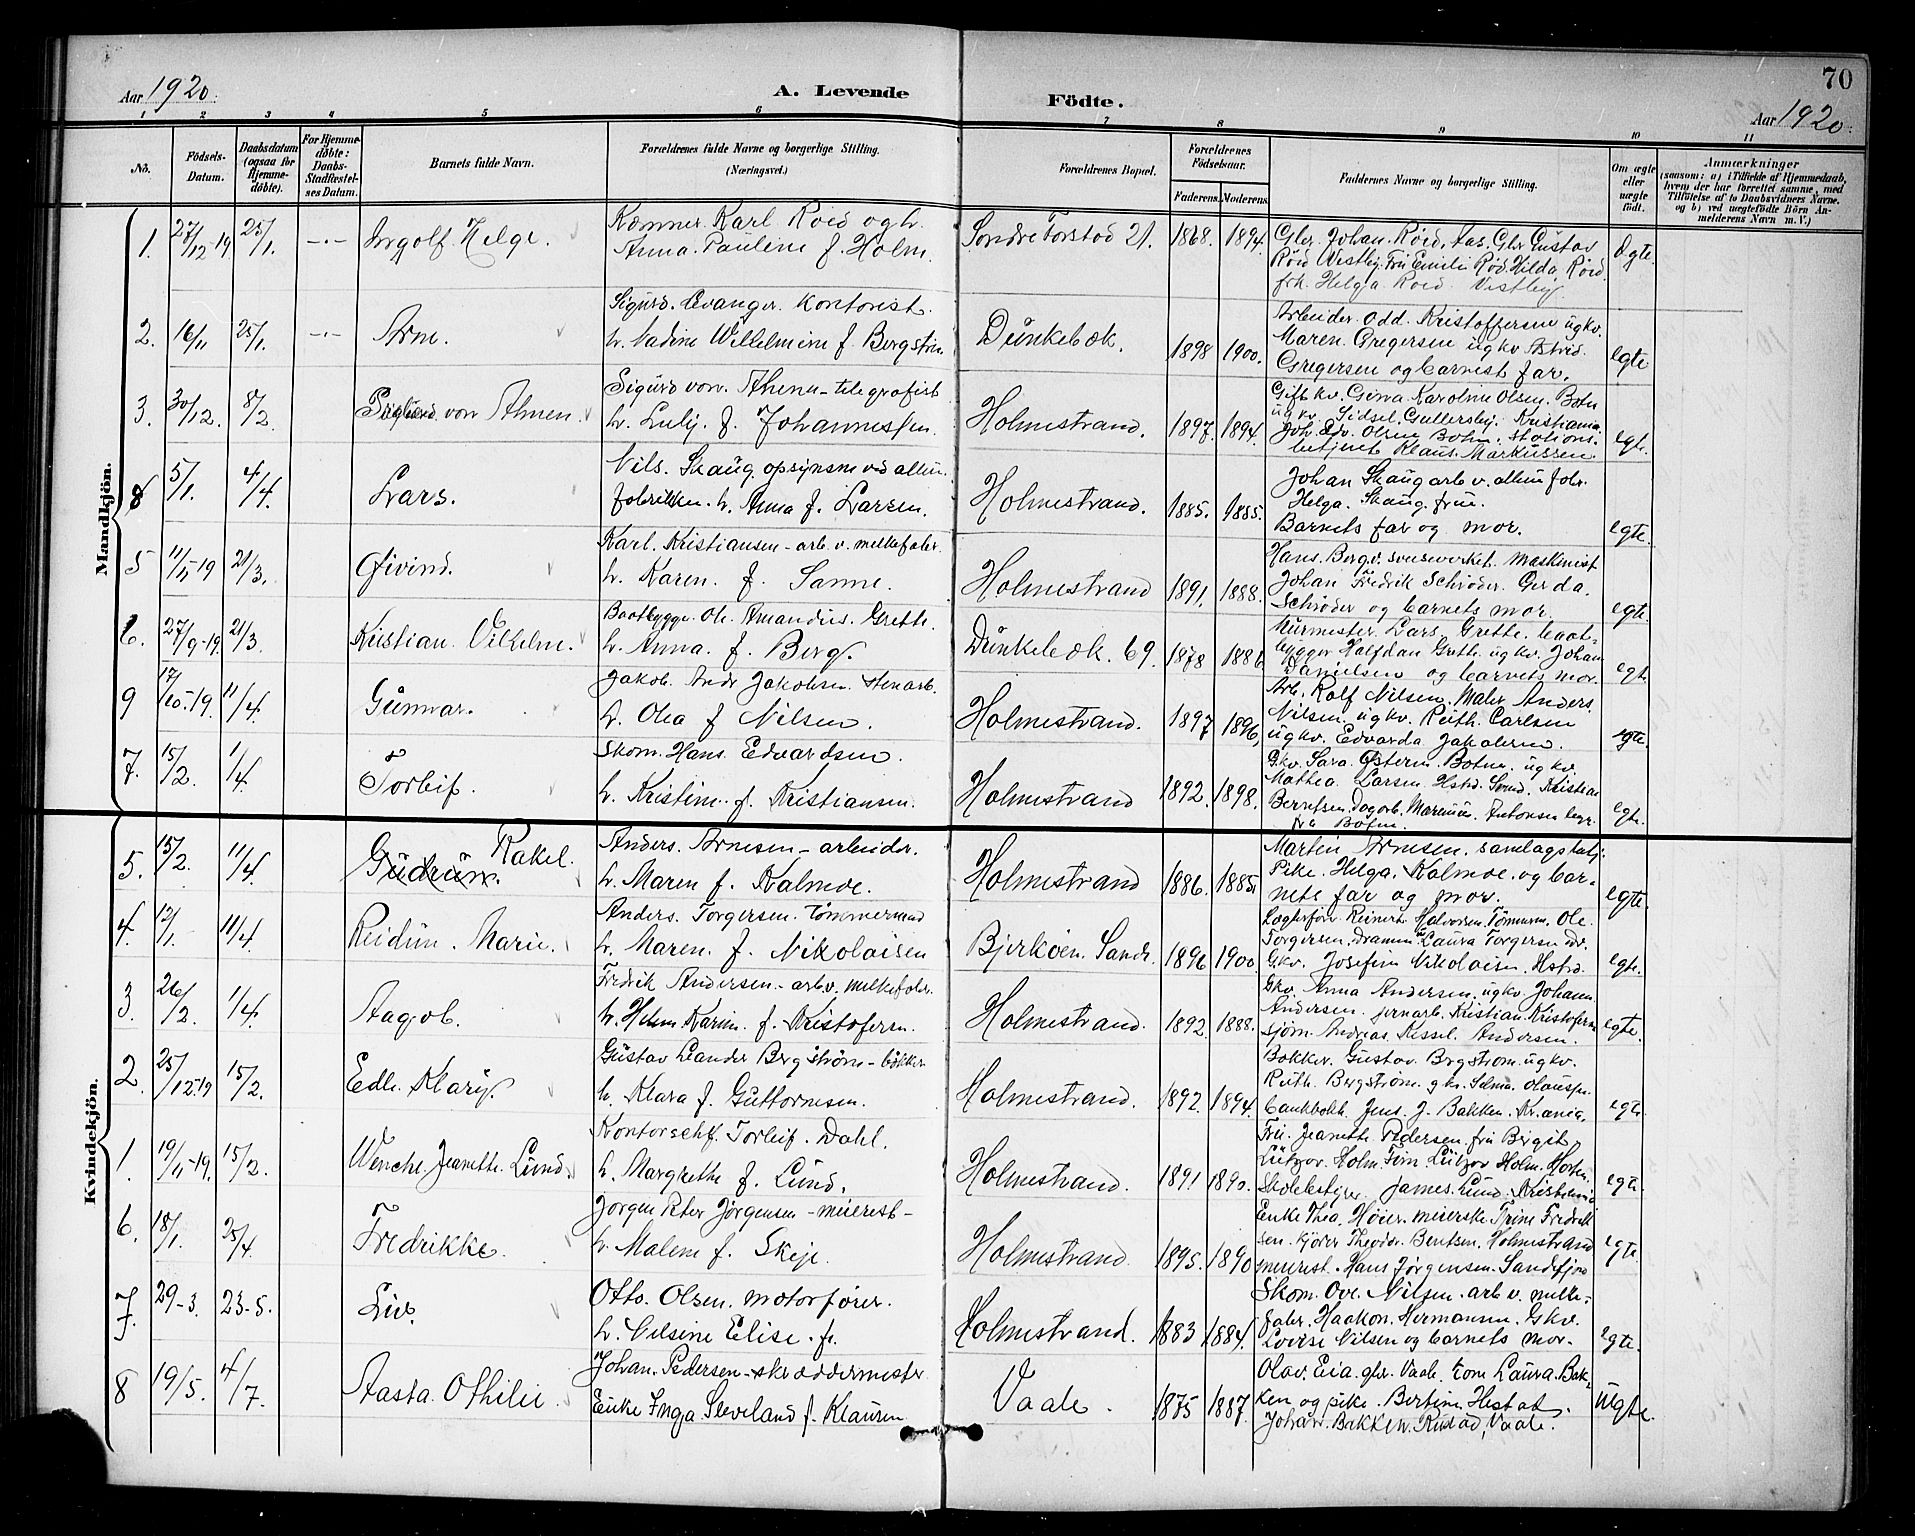 70
Aar 1920.
A. Levende
Födte.
Aar 1920.
1 2 3 4 5 6 7 8 9 10 11
No.
Födsels-Datum.
Daabsdatum (ogsaa for Hjemmedöbte).
For Hjemmedöbte: Daabs-Stadfæstelses Datum.
Barnets fulde Navn.
Forældrenes fulde Navne og borgerlige Stilling.
(Næringsvei.)
Forældrenes Bopæl.
Forældrenes Födselsaar.
Faderens. Moderens.
Faddernes Navne og borgerlige Stilling.
Om ægte eller uægte födt.
Anmærkninger
(saasom: a) i Tilfælde af Hjemmedaab,
hvem der har forrettet samme, med
Tilföielse af to Daabsvidners Navne.
og b) ved uegtefödte Börn An-
melderens Navn m. V.)
Mandkjön.
1. 27/12-19 25/1. -·- Ingolf Helge.
Kæmner Karl Röed og h.
Anna Pauline f. Holm.
Søndre Torstad 21. 1868. 1894.
Gbr. Johan Röed, Aas. Gbr Gustav
Röed Vestby. Fru Emilie Röd. Hilda Röed
frk. Helga Roed. Vestby
Ægte.
2. 16/11 25/1. -·- Arne.
Sigurd Evanger kontorist.
h. Nadine Wilhelmine f. Bergstrøm
Dunkebæk. 1898 1900.
Arbeider Odd Kristoffersen ugkv.
Maren Gregersen ugkv Astrid
Gregersen og barnets far.
egte
3. 30/12. 8/2. von Ahnen
Sigurd von Ahnen - telegrafist
h. Lully f. Johannessen.
Holmestrand. 1897. 1894.
Gift kv. Gina Karoline Olsen. Botne
ugkv Sidsel Gullersby. Kristiania
Joh. Edv. Olsen Botne. stations-
betjent Klaus Markussen
egte.
8 5/1. 4/4. Lars.
Nils Skaug opsynsm ved allum.
fabrikken. h. Anna f. Larsen.
Holmestrand. 1885. 1885.
Johan Skaug arb v. allum fabr.
Helga Skaug frue.
Barnets far og mor.
egte.
5 11/11-19 21/3. Øivind.
Karl Kristiansen - arb. v. melkefabr.
h. Karen f. Sanne.
Holmestrand 1891. 1888.
Hans Berg v. maskinist
Johan Fredrik Schrøder. Gerda
Schrøder og barnets mor.
egte.
6. 27/9-19. 21/3. Kristian Vilhelm.
Baatbygge Ole Amandus Grette.
h. Anna f. Berg.
Dunkebæk. 69. 1878 1886
Murmester Lars Grette. baat-
bygger Halfdan Grette. ugkv. Johan
Danielsen og barnets mor.
egt.
9 17/10-19. 11/4. Gunnar.
Jakob Andr Jakobsen stenarb.
h. Olea f Nilsen.
Holmestrand. 1897 1896,
Arb. Rolf Nilsen, Maler Anders
Nilsen. ugkv. Ruth Carlsen
ugkv. Edvarda Jakobsen.
egte.
7. 15/2. 1/4. Torleif.
Skom. Hans Edvardsen.
h. Kristine f. Kristiansen.
Holmestrand 1892. 1898.
Gkv. Sara Østern. Botne. ugkv
Mathea Larsen Hstrd. Kristian
Berntsen. Dagarb. Marenius Antonsen
fra Botne.
egte.
Kvindekjön.
5. 15/2. 11/4. Gudrun. Rakel.
Anders Arnesen - arbeider.
h. Maren f. Kalmoe.
Holmestrand 1886. 1885.
Martin Arnesen. samlagsbetj.
Pike Helga Kalmoe og bar-
nets far og mor.
egte.
4. 12/1. 11/4. Reidun Marie.
Anders Torgersen. tømmermand
h. Maren f. Nikolaisen
Bjerkøen. Sande. 1896 1900
Reinert Halvorsen Tømmerm. Ole
Torgersen, Drammen Laura Torgersen
Gkv. Josefine Nikolaisen. Hstrd.
egte.
3. 26/2. 1/4. Aagot.
Fredrik Andersen - arb. v. melkefabr.
h. Helene Karine f. Kristofersen.
Holmestrand. 1892. 1888.
Gkv. Anna Andersen. ugkv. Johann
Andersen. jernarb. Kristian Kristofersen
sjøm. Andreas Kissel Andersen.
egte.
2. 25/12-19 15/2. Edle Klary.
Gustav Leander Bergstrøm - bakker
h. Klara f. Guttormsen.
Holmestrand. 1892. 1894.
Bakker Gustav Bergstrøm ugkv.
Ruth Bergstrøm. gkv. Selma Olaussen
bankbokh. Jens J. Bakken. Kr.ania,
egte.
1. 19/11-19. 15/2. Wenche Jeanette Lund.
Kontorschf. Torleif Dahl.
h. Margrethe f. Lund.
Holmestrand. 1891 1890.
Fru Jeanette Pedersen. fru Bergit
Lützov Holm. Finn Lützov Holm. Horten
Skolebestyrer James Lund. Kristiania
egte.
6. 18/1. 25/4. Fredrikke.
Jørgen Peter Jørgensen - meierist -
h. Malene f. Skeje.
Holmestrand. 1895. 1890
Enke Thea Høier. meierske Trine Fredrik
sen. kjører Theodor Bentsen, Holmestrand
meierist. Hans Jørgensen. Sandefjord
egte
7. 29-3. 23-5. Liv.
Otto Olsen. motorfører.
h. Nilsine Elise f.
Holmestrand. 1883 1884.
Skom. Ove Nilsen. arb v. melke-
fabr. Haakon Hermansen. Gkv.
Lovise Nilsen og barnets mor.
egte.
8 19/5. 4/7. Aasta Othilie.
Johan Pedersen - skræddermester
Enke Inga Sleveland f. Klausen
Vaale. 1875 1887.
Olav Eia. gbr. Vaale. kone Laura Bak-
ken og pike Bertine Hestad.
Johan Bakken. Rustad, Vaale.
Uegte.